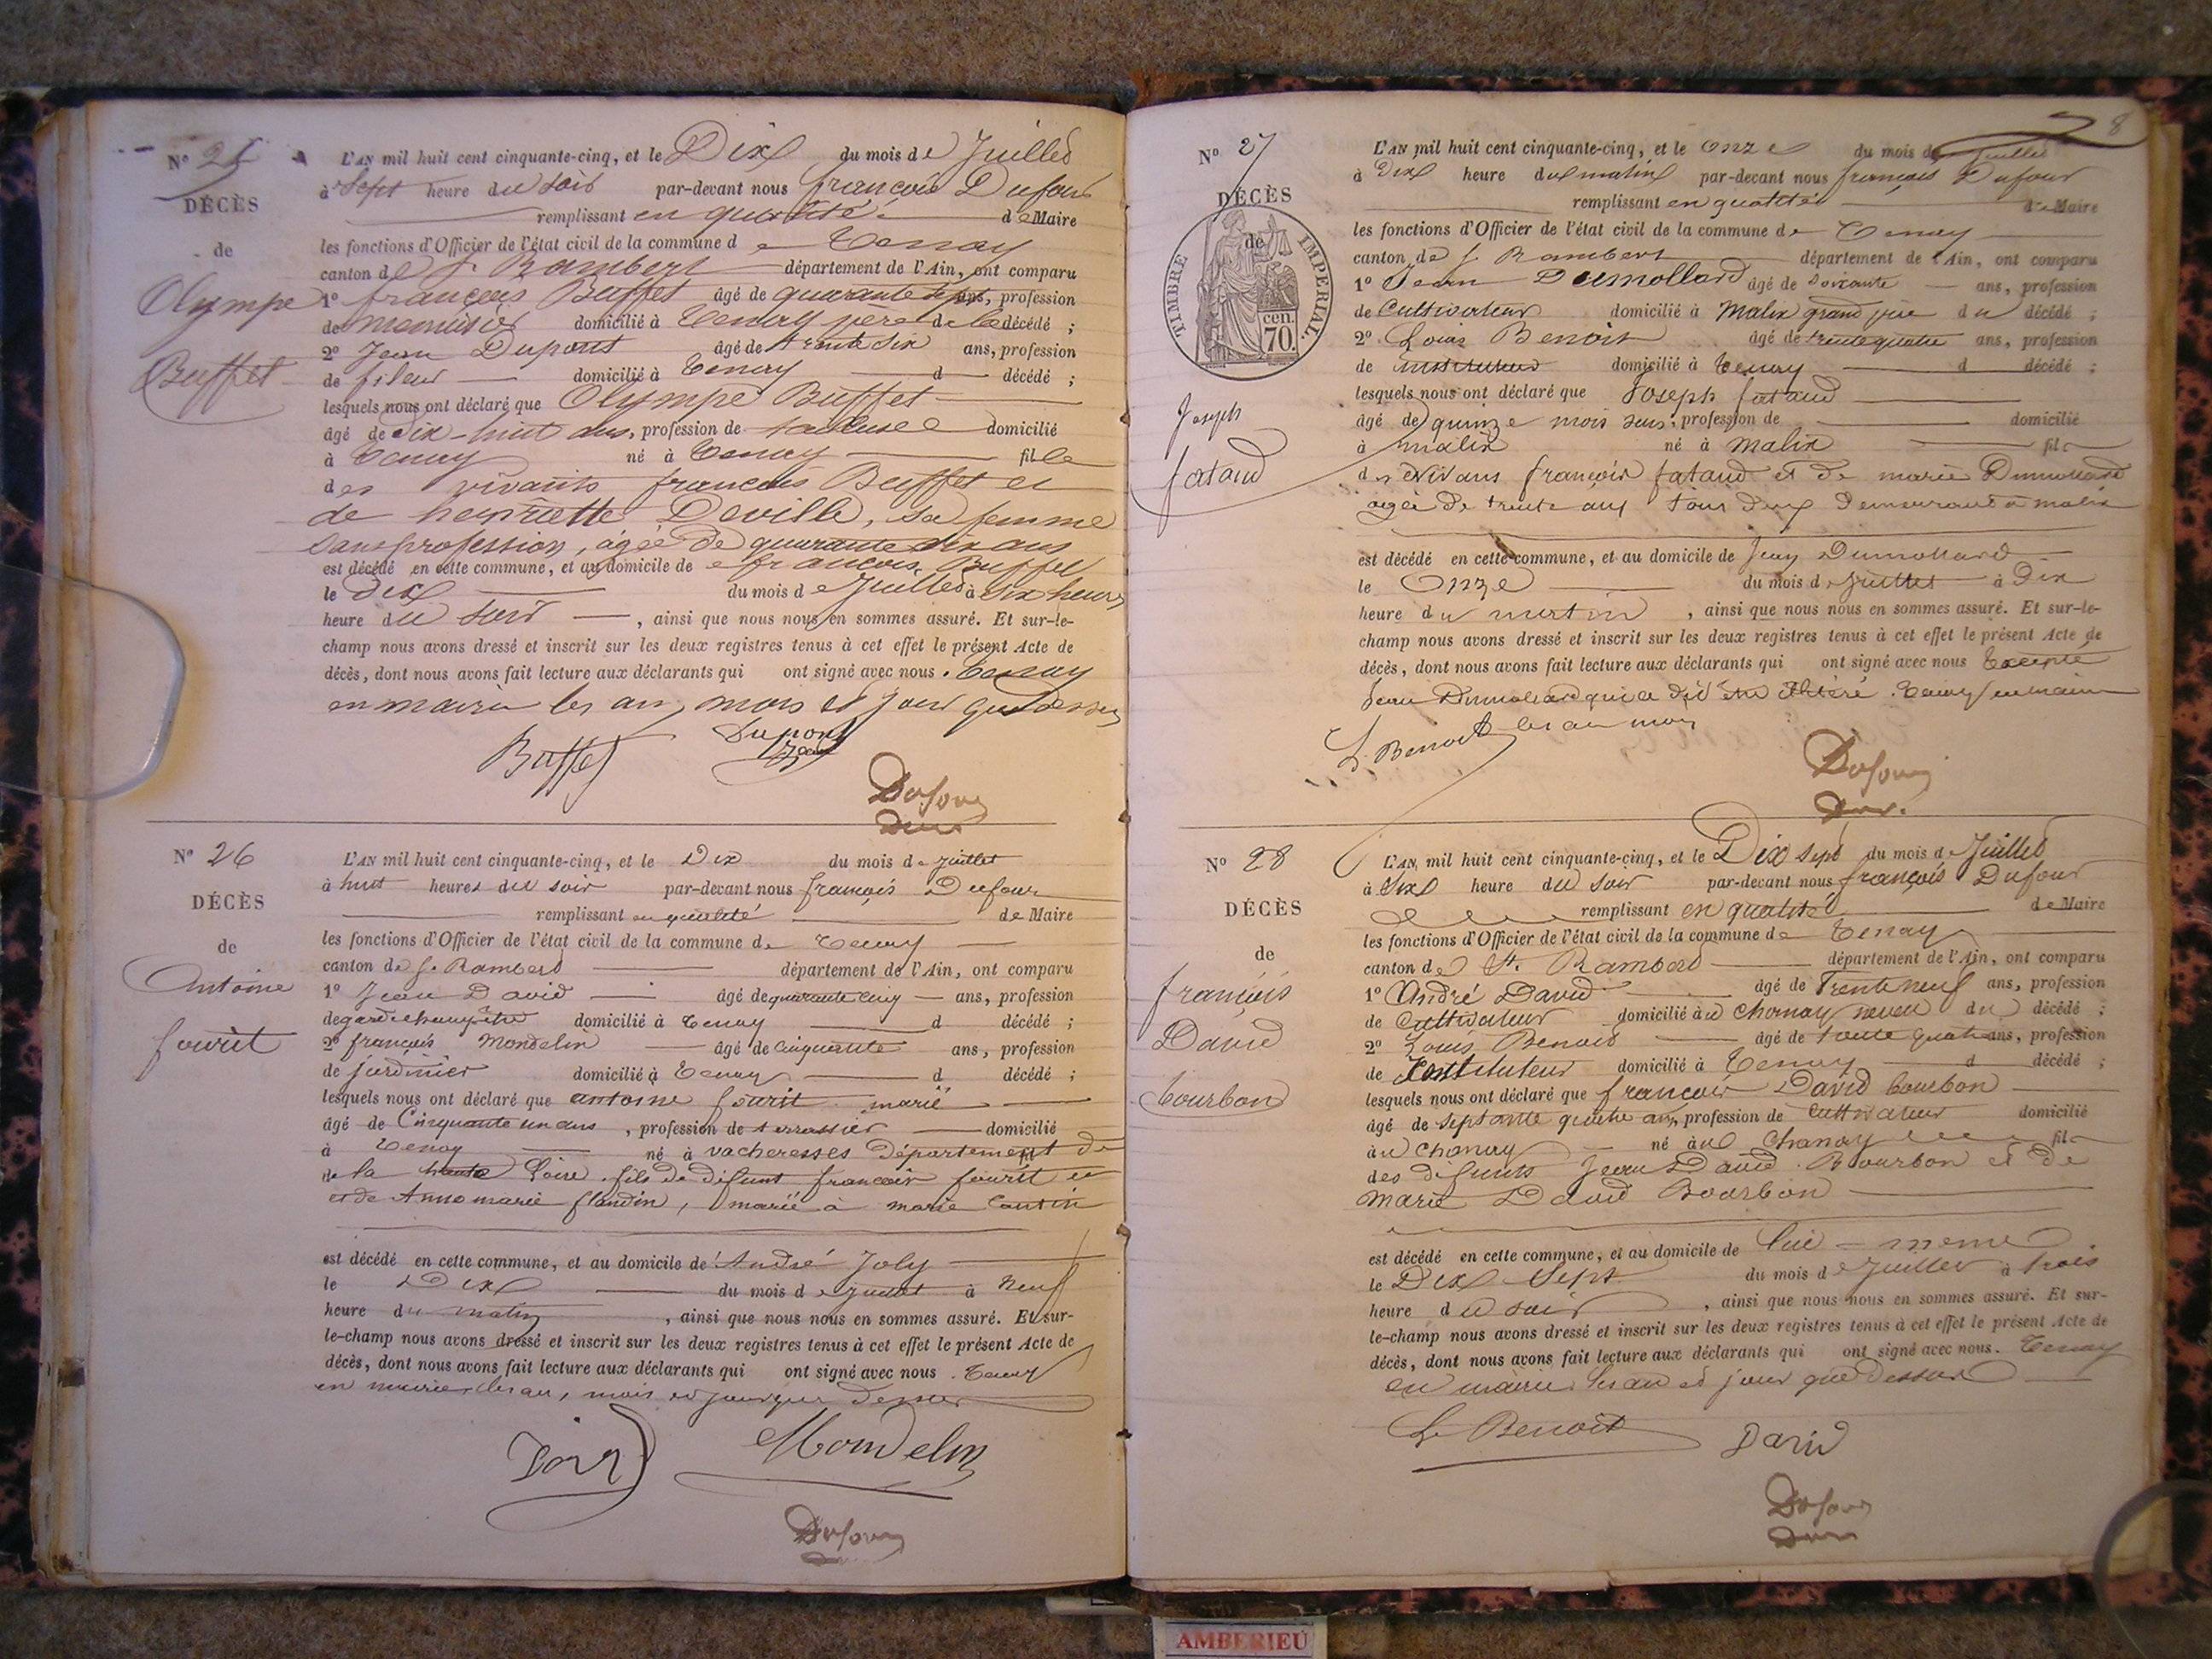 N° 25
DÉCÈS
de
Olympe
Buffet
L'AN mil huit cent cinquante-cinq, et le Dix du mois de Juillet
à Sept heure du soir par-devant nous françois Dufour
remplissant en qualité de Maire
les fonctions d'Officier de l'état civil de la commune de Tenay
canton de St Rambert département de l'Ain, ont comparu
1° françois Buffet âgé de quarante sept ans, profession
de menuisier domicilié à Tenay père de la décédé ;
2° Jean Dupont âgé de trente six ans, profession
de fileur domicilié à Tenay d décédé ;
lesquels nous ont déclaré que Olympe Buffet
âgé de dix-huit ans, profession de domicilié
à Tenay né à Tenay fille
des vivants francois Buffet et
de henriette Deville, sa femme
sans profession, âgée de quarante six ans
est décédé en cette commune, et au domicile de francois Buffet
le dix du mois de Juillet à six heures
heure du soir , ainsi que nous nous en sommes assuré. Et sur-le-
champ nous avons dressé et inscrit sur les deux registres tenus à cet effet le présent Acte de
décès, dont nous avons fait lecture aux déclarants qui ont signé avec nous. Tenay
en mairie les an, mois et jour que dessus
Buffet Dupont Jean
Dufour
N° 26
DÉCÈS
de
Antoine
fourit
L'AN mil huit cent cinquante-cinq, et le Dix du mois de juillet
à huit heures du soir par-devant nous françois Dufour
remplissant en qualité de Maire
les fonctions d'Officier de l'état civil de la commune de Tenay
canton de St Rambert département de l'Ain, ont comparu
1° Jean David âgé de quarante cinq ans, profession
de garde champêtre domicilié à Tenay d décédé ;
2° françois Mondelin âgé de cinquante ans, profession
de jardinier domicilié à Tenay d décédé ;
lesquels nous ont déclaré que antoine fourit marié
âgé de Cinquante un ans , profession de terrassier domicilié
à Tenay né à vacheresses Département de
de la haute Loire, fils de défunt francois fourit et
et de Anne marie flandin, marié à marie
est décédé en cette commune, et au domicile de André Joly
le Dix du mois de juillet à neuf
heure du matin , ainsi que nous nous en sommes assuré. Et sur-
le-champ nous avons dressé et inscrit sur les deux registres tenus à cet effet le présent Acte de
décès, dont nous avons fait lecture aux déclarants qui ont signé avec nous. Tenay
en mairie les an, mois et jour que dessus
Mondelin
Dufour
8
N° 27
DÉCÈS
de
TIMBRE IMPERIAL.
70 cen
Joseph
fataud
L'AN mil huit cent cinquante-cinq, et le onze du mois de juillet
à Dix heure du matin par-devant nous françois Dufour
remplissant en qualité de Maire
les fonctions d'Officier de l'état civil de la commune de Tenay
canton de St Rambert département de l'Ain, ont comparu
1° Jean Dumollard âgé de soixante ans, profession
de Cultivateur domicilié à Malix grand père du décédé ;
2° Louis Benoit âgé de trente quatre ans, profession
de instituteur domicilié à Tenay d décédé ;
lesquels nous ont déclaré que Joseph fataud
âgé de quinze mois sans profession de domicilié
à malix né à malix fils
des vivans françois fataud et de marie Dumollard
agée de trente ans tous deux demeurant à malix
est décédé en cette commune, et au domicile de Jean Dumollard
le Onze du mois de juillet à Dix
heure du matin , ainsi que nous nous en sommes assuré. Et sur-le-
champ nous avons dressé et inscrit sur les deux registres tenus à cet effet le présent Acte de
décès, dont nous avons fait lecture aux déclarants qui ont signé avec nous Excepté
Jean Dumollard qui a dit être illitéré. Tenay en mairie
les an mois
L. Benoit
Dufour
N° 28
DÉCÈS
de
françois
David
bourbon
L'AN mil huit cent cinquante-cinq, et le Dix sept du mois de Juillet
à Six heure du soir par-devant nous françois Dufour
remplissant en qualité de Maire
les fonctions d'Officier de l'état civil de la commune de Tenay
canton de St. Rambert département de l'Ain, ont comparu
1° André David âgé de Trente neuf ans, profession
de Cultivateur domicilié au Chanay neveu du décédé ;
2° Louis Benoit âgé de trente quatre ans, profession
de Instituteur domicilié à Tenay d décédé ;
lesquels nous ont déclaré que francois David bourbon
âgé de septante quatre ans, profession de Cultivateur domicilié
au Chanay né au Chanay fils
des défunts Jean David Bourbon et de
Marie David Bourbon
est décédé en cette commune, et au domicile de lui-meme
le Dix Sept du mois de Juillet à trois
heure du soir , ainsi que nous nous en sommes assuré. Et sur-
le-champ nous avons dressé et inscrit sur les deux registres tenus à cet effet le présent Acte de
décès, dont nous avons fait lecture aux déclarants qui ont signé avec nous. Tenay
en mairie les an et jour que dessus
L. Benoit David
Dufour
AMBERIEU